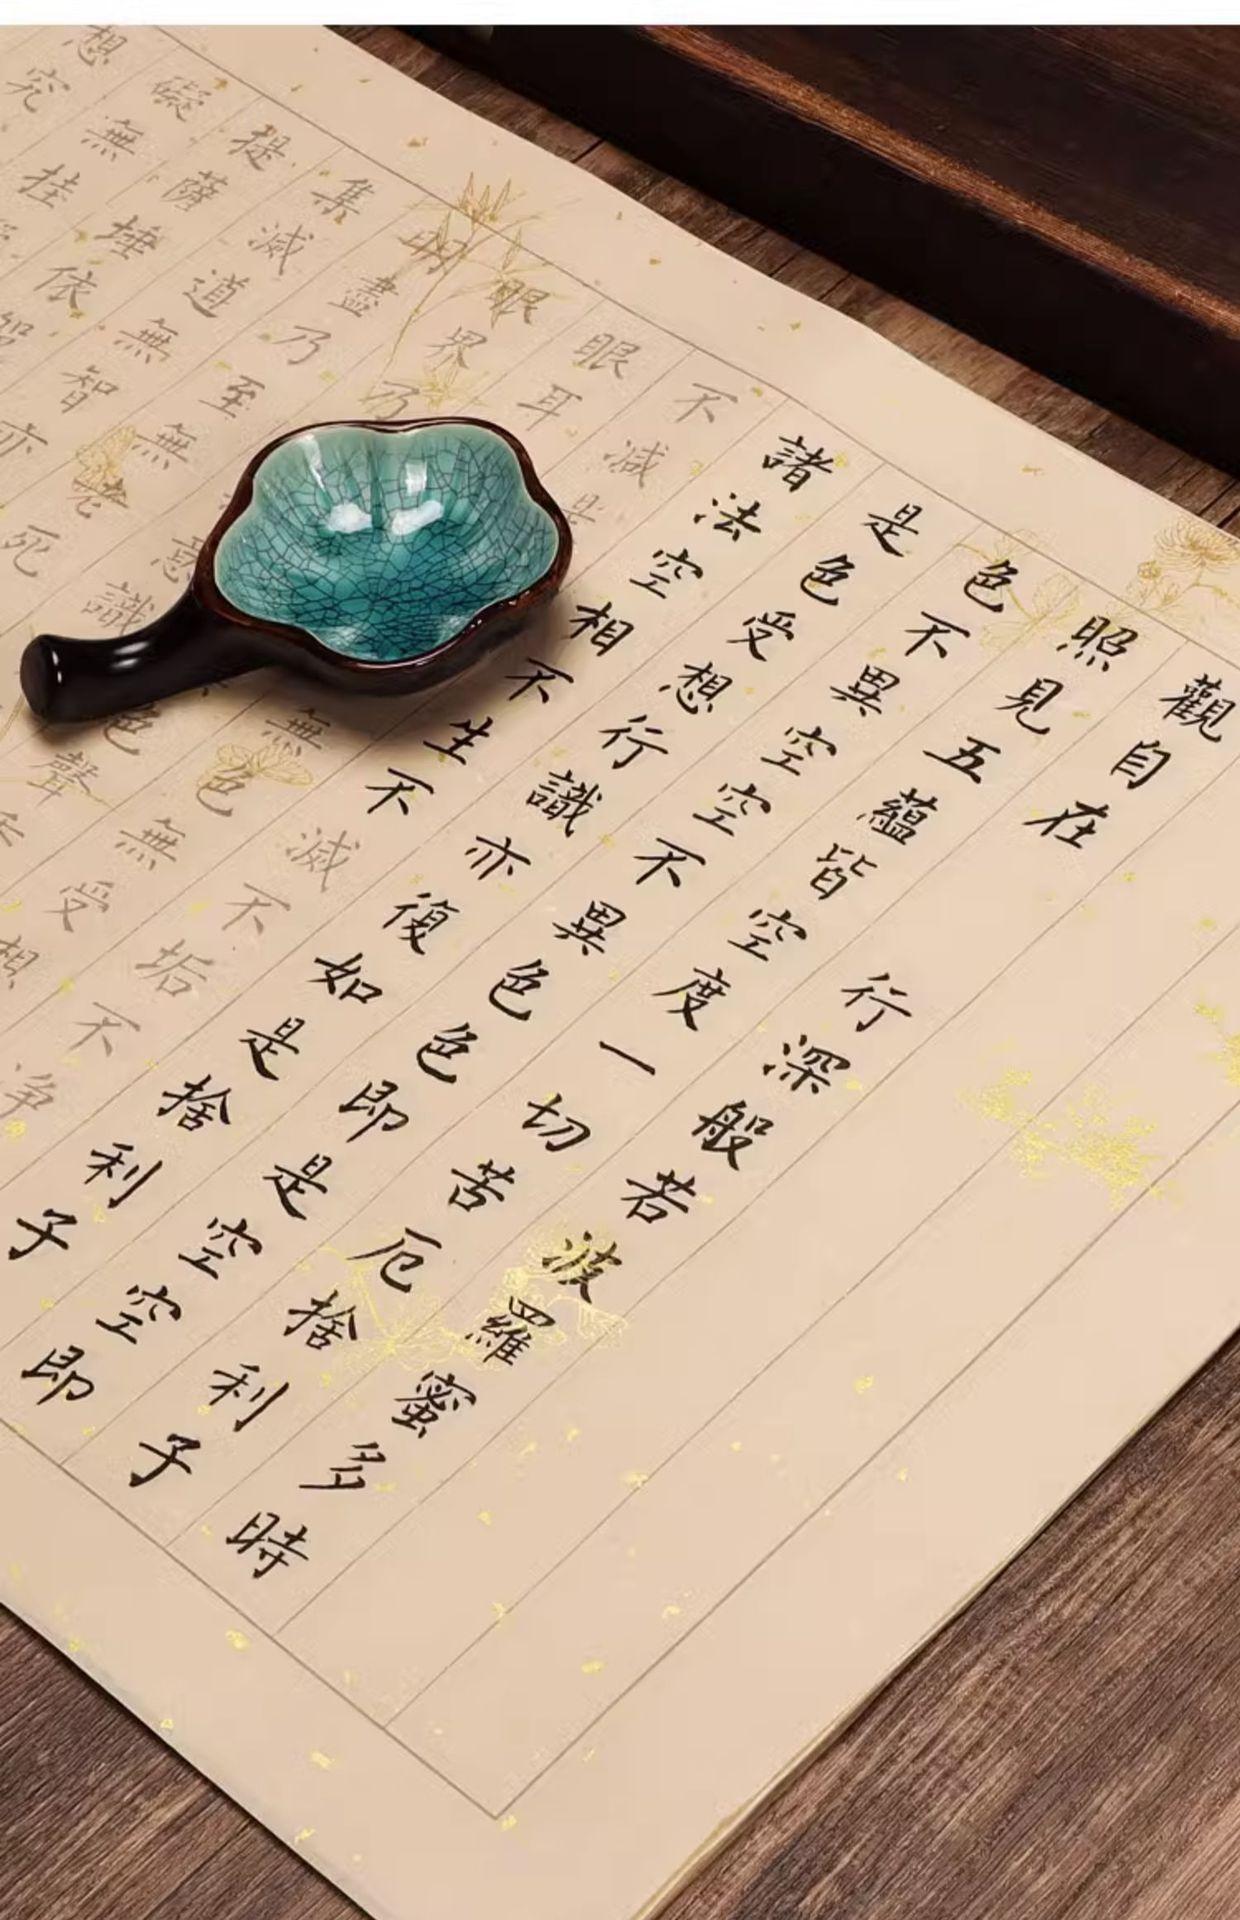 觀自在行深般若波羅蜜多時
照見五蘊皆空度一切苦厄捨利子
色不異空空不異色色即是空空即
是色受想行識亦復如是捨利子
諸法空相不生不滅不垢不净
不減是無色無受想
眼耳色聲
眼界乃意識
明盡乃至無老死
集滅道無智亦
提薩埵依
礙無挂
想究